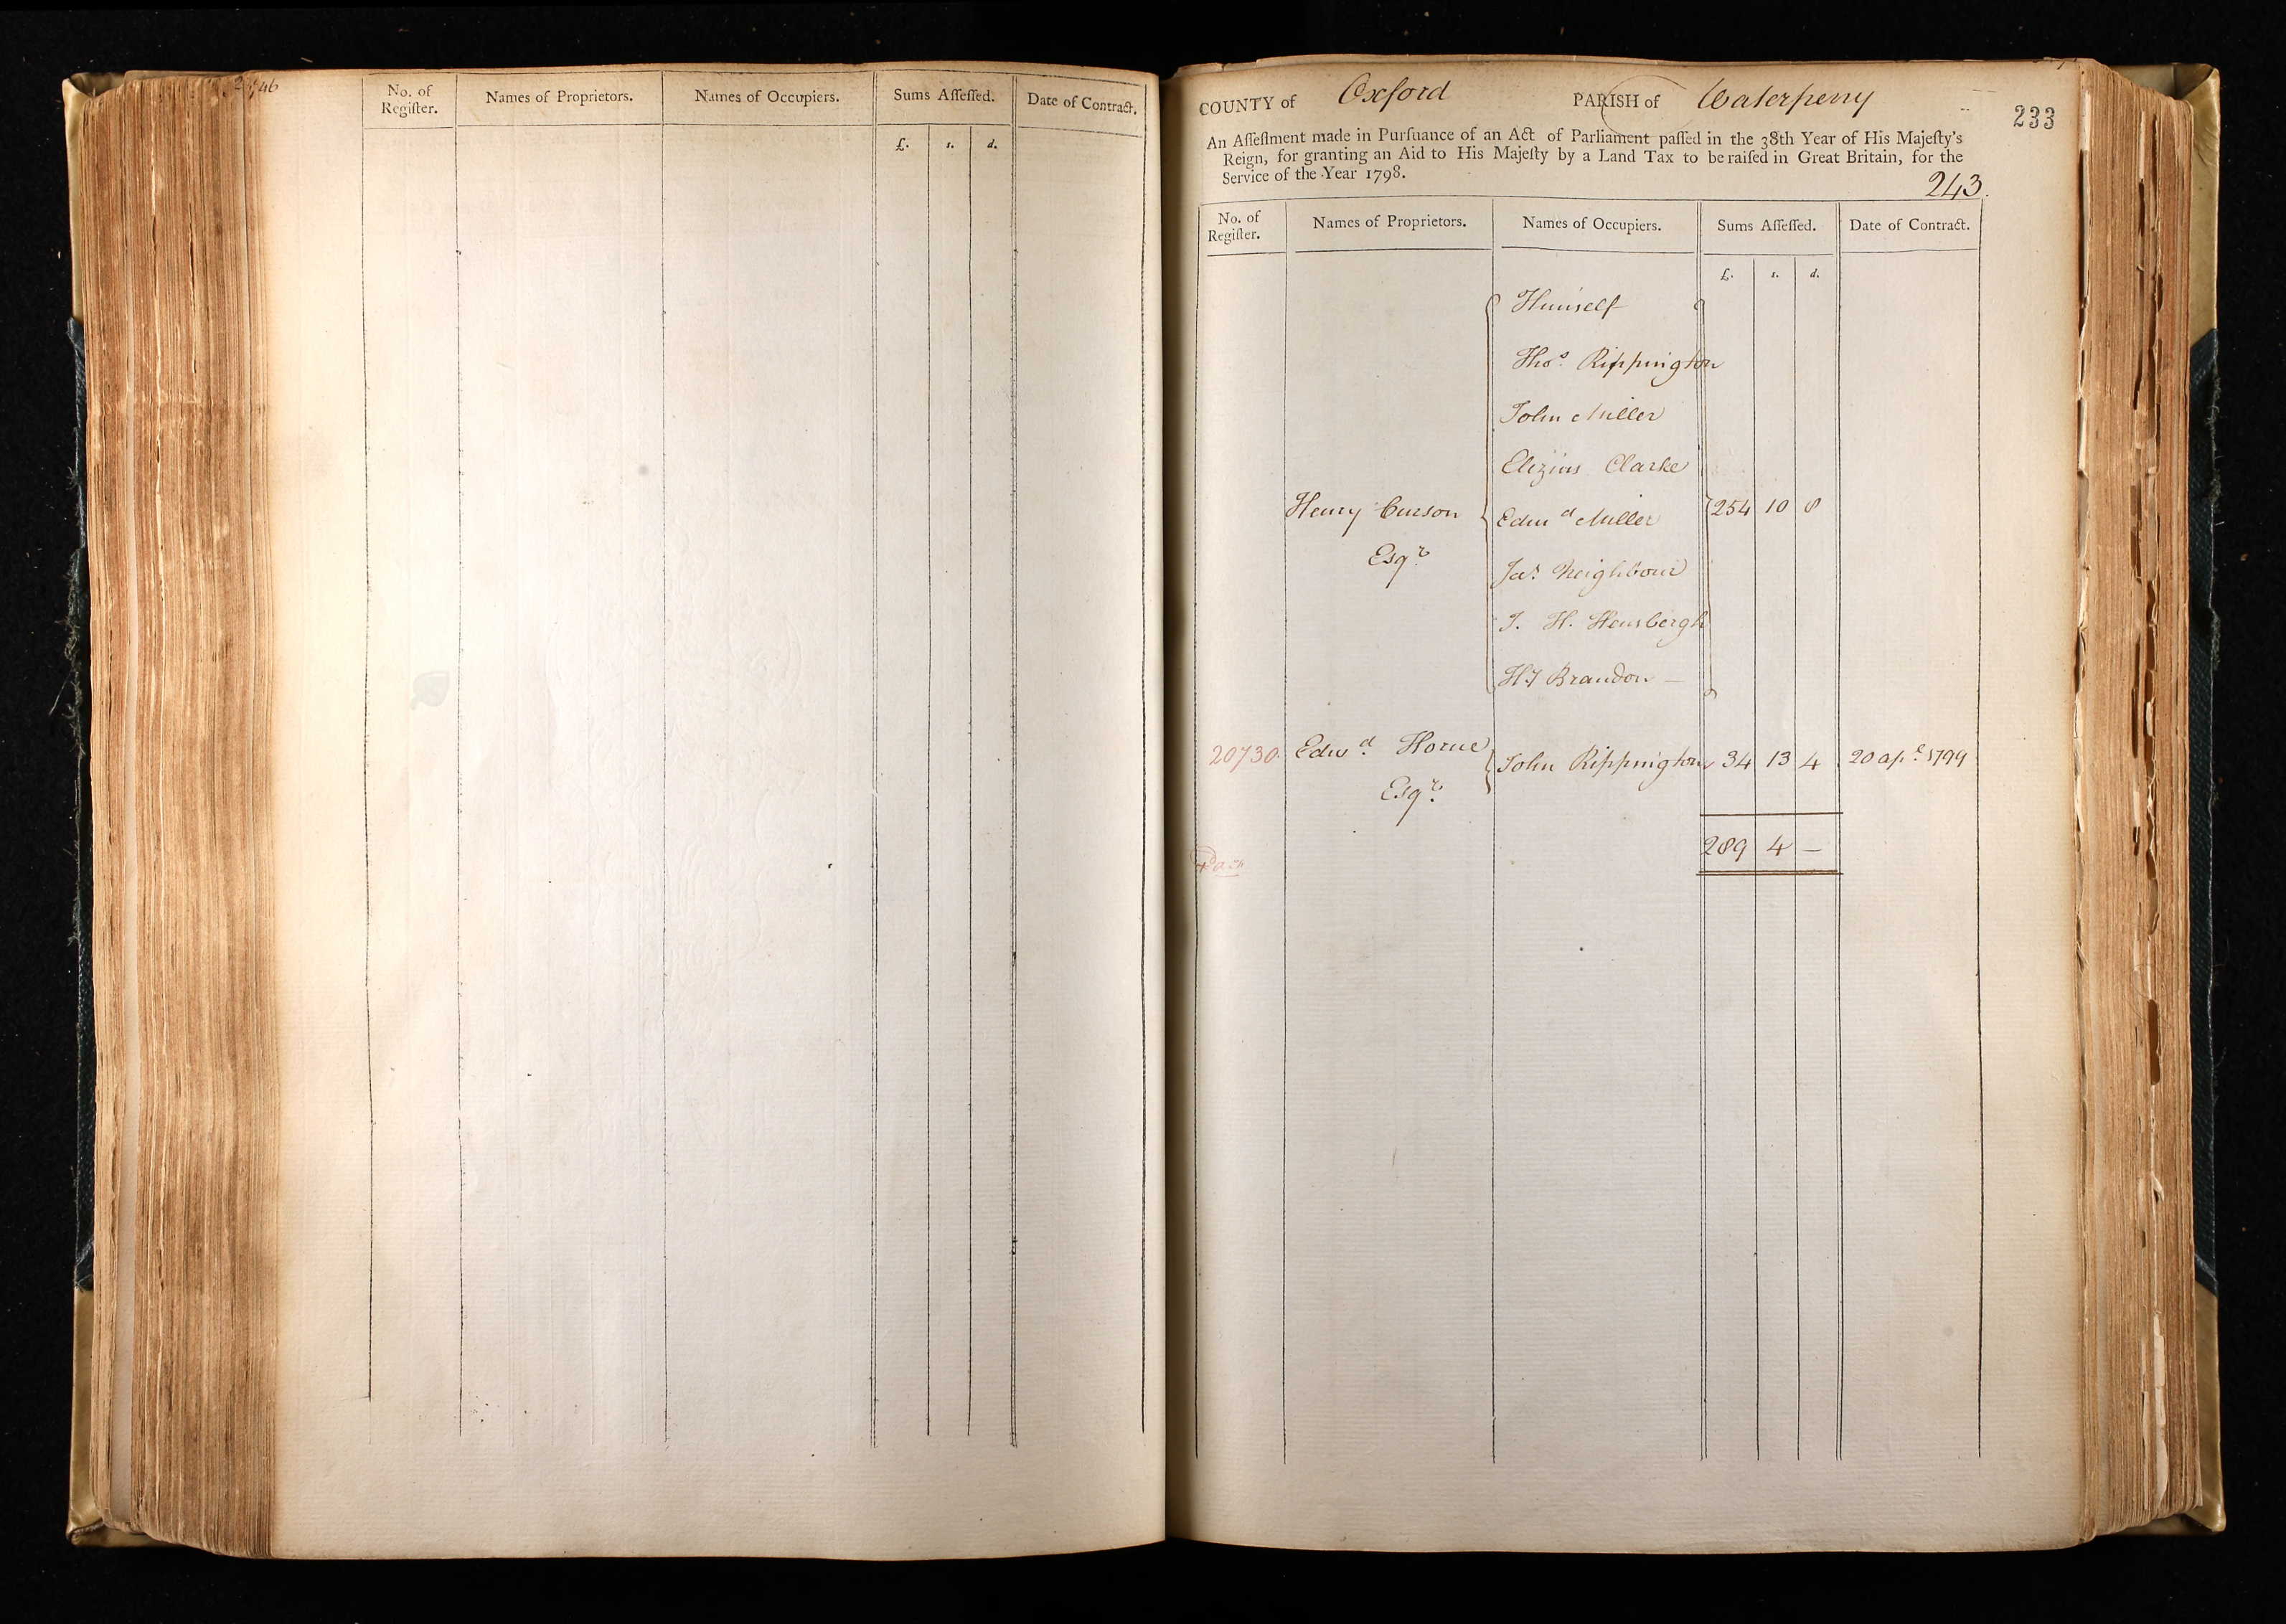 No. of Regiſter.
Names of Proprietors.
Names of Occupiers.
Sums Aſſeſſed.
Date of Contract.
£. s. d.
COUNTY of Oxford PARISH of Waterperry
233
An Aſſeſſment made in Purſuance of an Act of Parliament paſſed in the 38th Year of His Majeſty's
Reign, for granting an Aid to His Majeſty by a Land Tax to be raiſed in Great Britain, for the
Service of the Year 1798.
243.
No. of Regiſter.
Names of Proprietors.
Names of Occupiers.
Sums Aſſeſſed.
Date of Contract.
£. s. d.
Himself
Thos. Rippington
John Miller
Clarke
Henry Curson Edwd Miller 254 10 8
Esqr.
Jas. Neighbour
J. H. Hensbergh
Hy Brandon —
20730. Edwd. Horne John Rippington 34 13 4 20 apl. 1799
Esqr.
289 4 —